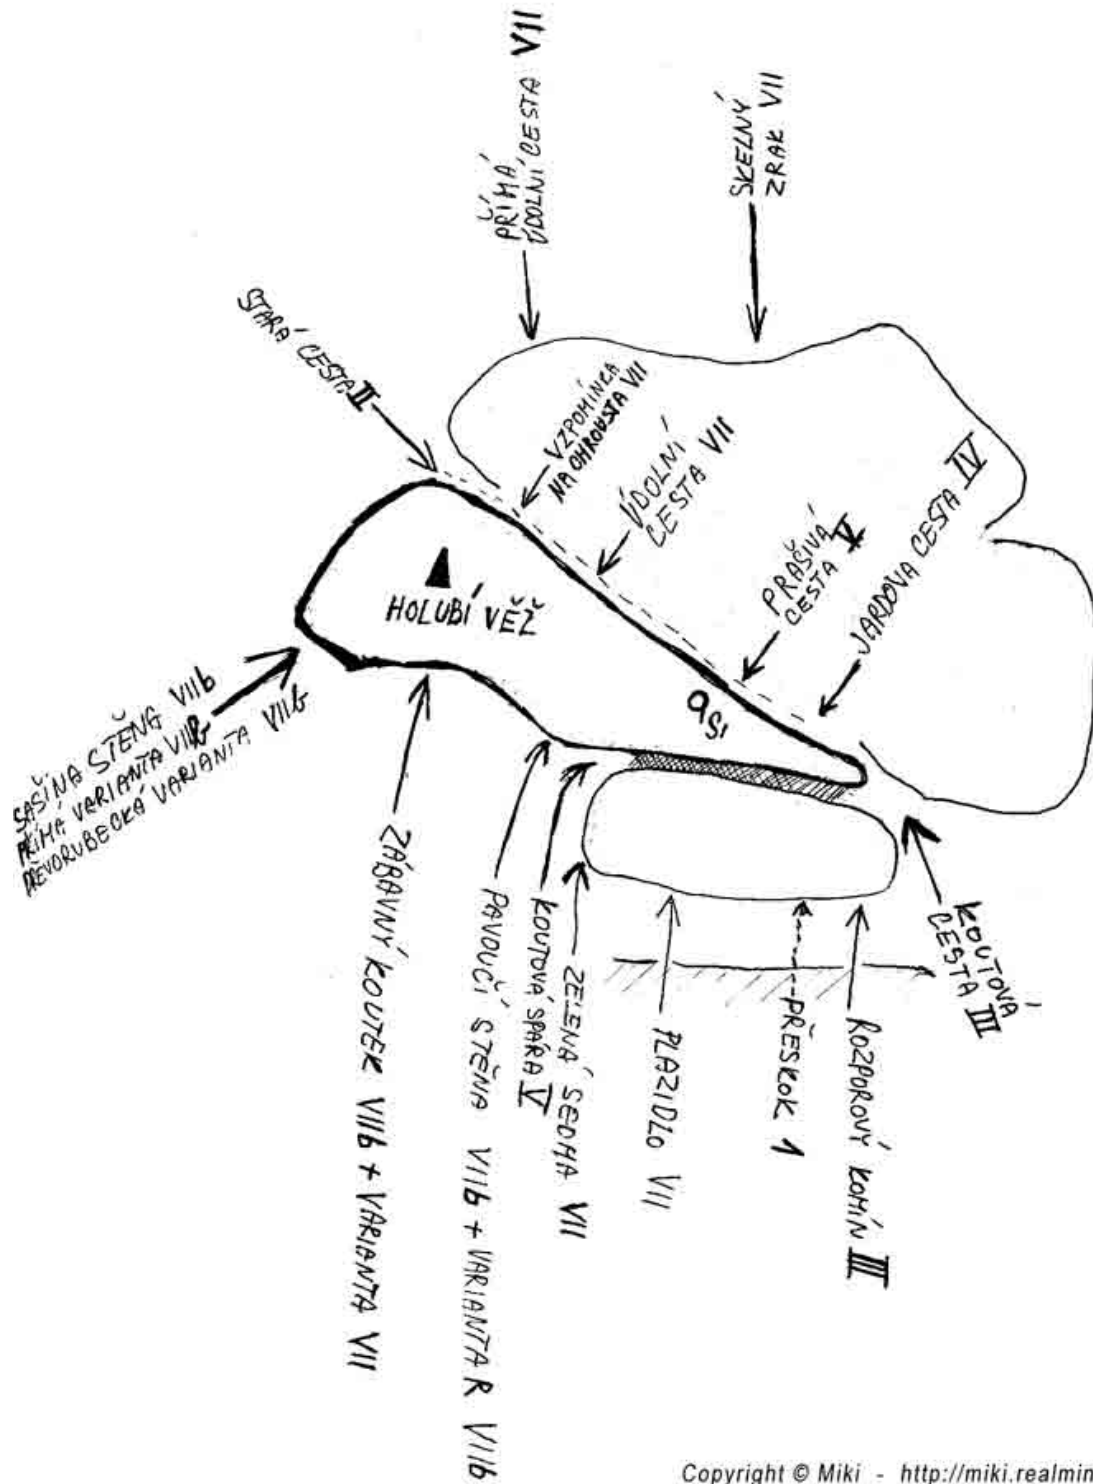 PŘÍMÁ
ÚDOLNÍ CESTA VII
SKELNÝ
ZRAK VII
STARÁ CESTA II
VZPOMÍNKA
NA OHROUSTA VII
ÚDOLNÍ
CESTA VII
PRAŠIVÁ
CESTA V
JARDOVA CESTA IV
HOLUBÍ VĚŽ
SAŠINA STĚNA VIIb
PŘÍMÁ VARIANTA VIIb
DŘEVORUBECKÁ VARIANTA VIIb
ZÁBAVNÝ KOUTEK VIIb + VARIANTA VII
PAVOUČÍ STĚNA VIIb + VARIANTA R VIIb
KOUTOVÁ SPÁRA V
ZELENÁ SEDMA VII
PLAZIDLO VII
PŘESKOK 1
ROZPOROVÝ KOMÍN III
KOUTOVÁ
CESTA III
Copyright © Miki - http://miki.realmin